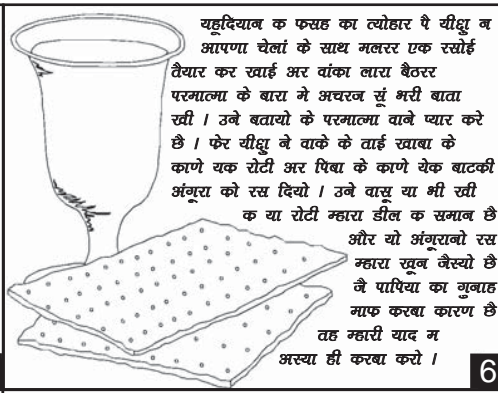 यहूदियान क फसह का त्योहार पै यीशु न
आपणा चेलां के साथ मलरर एक रसोई
तैयार कर खाई अर वांका लारा बैठरर
परमात्मा के बारा मे अचरज सूं भरी बाता
खी । उने बतायो के परमात्मा वाने प्यार करे
छै । फेर यीशु ने वाके के ताई खाबा के
काणे यक रोटी अर पिबा के काणे येक बाटकी
अंगूरा को रस दियो । उने वासू या भी खी
क या रोटी म्हारा डील क समान छै
और यो अंगूरानो रस
म्हारा खून जैस्यो छै
जै पापिया का गुनाह
माफ करबा कारण छै
तह म्हारी याद म
अस्या ही करबा करो ।
6